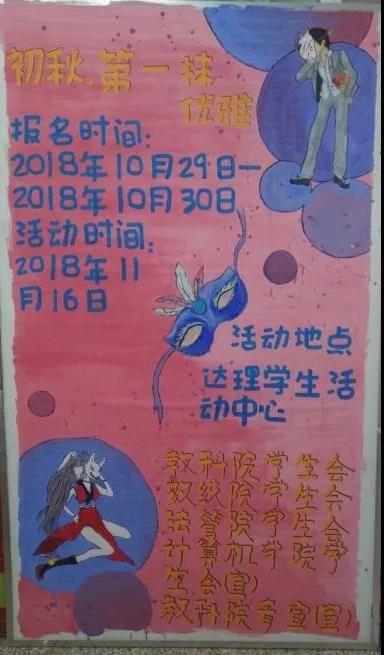 初秋,第一抹
优雅
报名时间:
2018年10月29日一
2018年10月30日
活动时间:
2018年11
月16日
活动地点
达理学生活
动中心
教科院学生会
数统院学生会
法管院学生会
计算机学院学
生会宣)
教科院青宣宣)